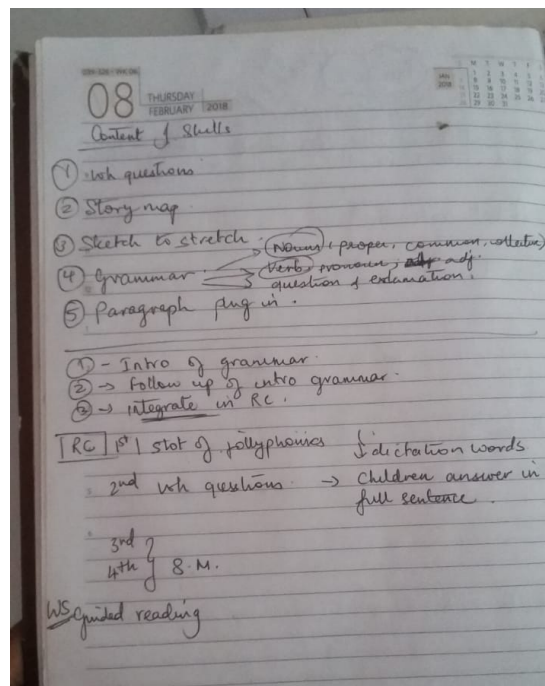 08 THURSDAY
FEBRUARY 2018
JAN
2018
Content of Skills
① Wh questions
② Story map
③ Sketch to stretch.
④ Grammar → (Noun) (proper, common, collective)
(Verb), pronoun, adj.
question & exclamation.
⑤ Paragraph plug in.
① - Intro of grammar.
② → Follow up of intro grammar.
③ → integrate in RC.
RC | 1st | slot of jollyphonics } dictation words
2nd Wh questions. → Children answer in
full sentence.
3rd
4th } S.M.
WS Guided reading